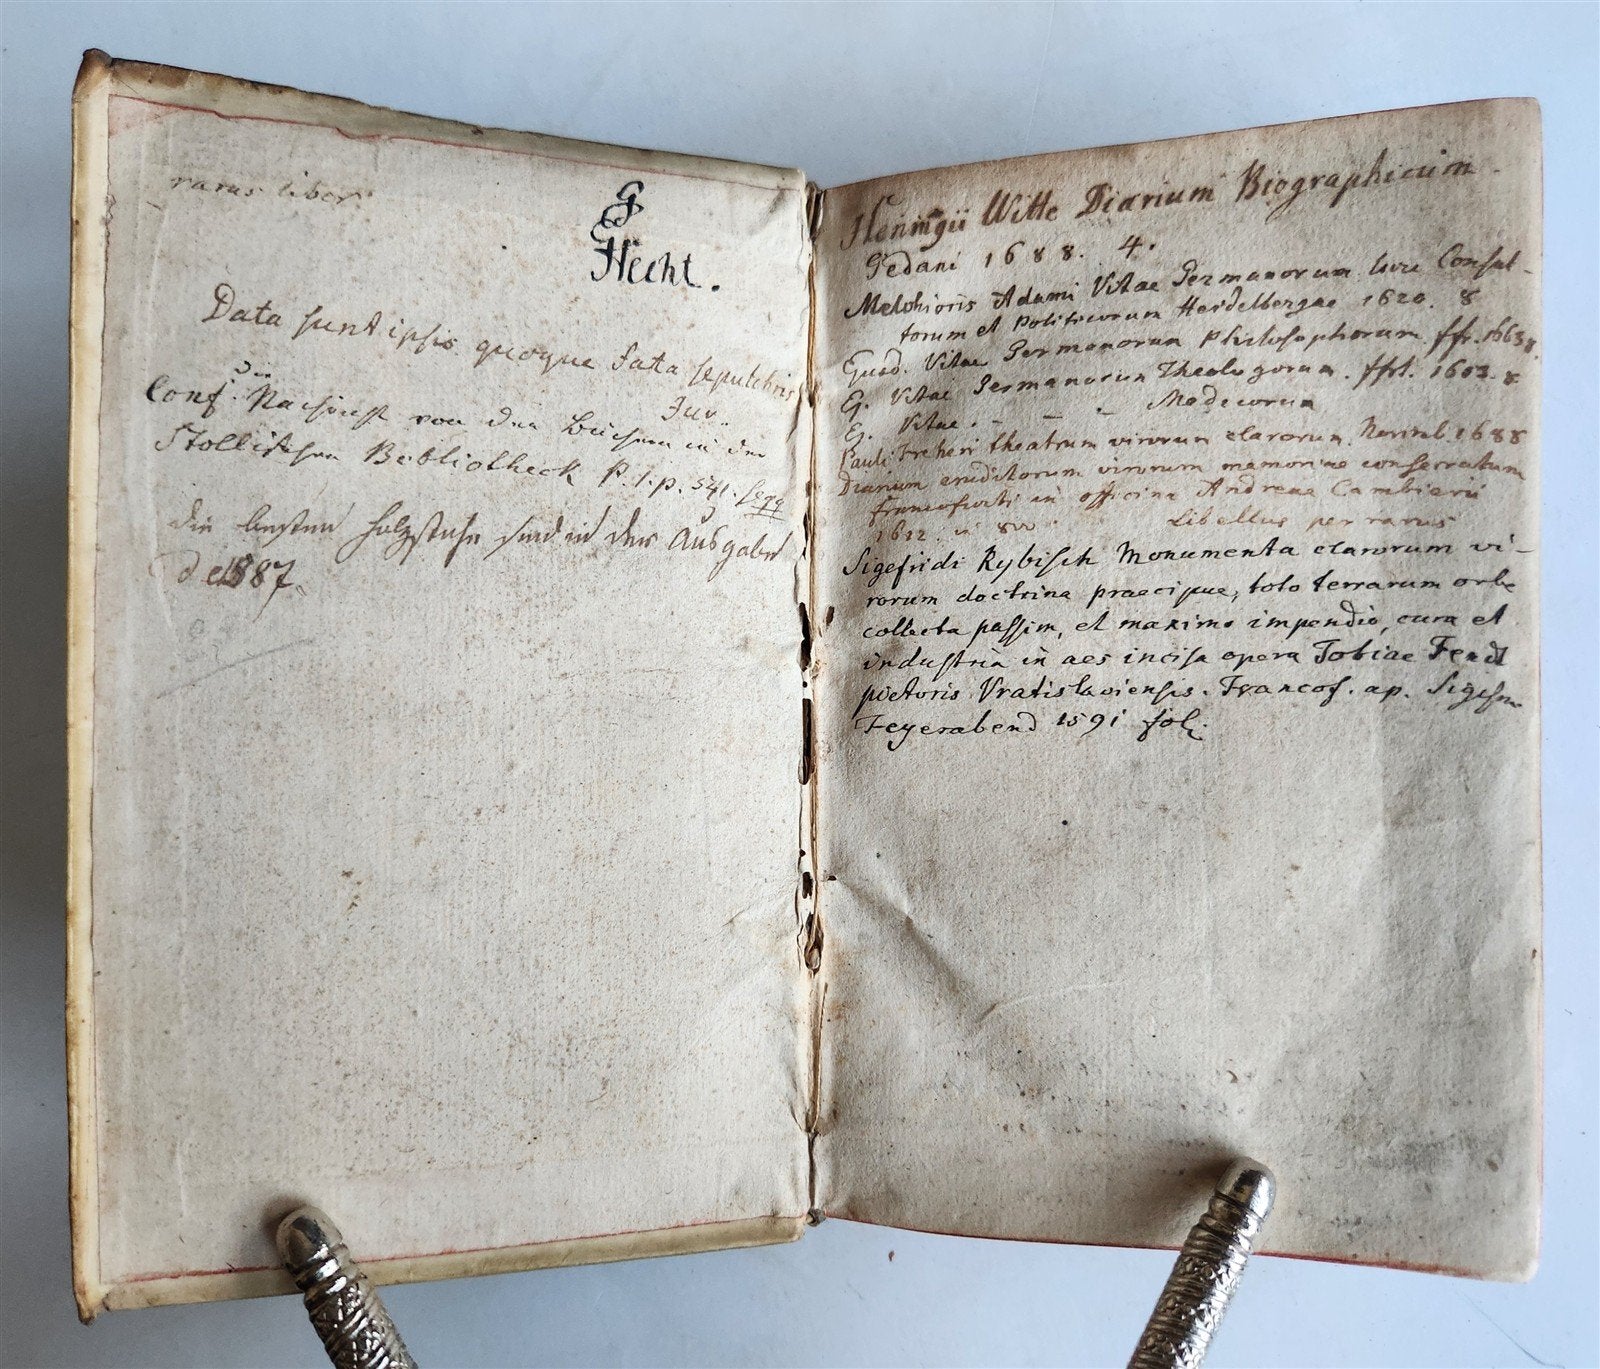 rarus liber
G
Hecht.
Data sunt ipsis quoque fata sepulchris
Juv.
Conf. die Nachricht von den Büchern in der
Stollischen Bibliotheck P. 1. p. 541. seqq
die besten holzstiche sind in der Ausgabe
de 1587.
Henningii Witte Diarium Biographicum
Gedani 1688. 4.
Melchioris Adami Vitae Germanorum Iure Consul-
torum et Politicorum Heidelbergae 1620. 8
Eiusd. Vitae Germanorum Philosophorum. ffr. 1663 8.
Ej. Vitae Germanorum Theologorum. ffrt. 1653. 8
Ej. Vitae. - - - Medicorum
Pauli Freheri theatrum virorum clarorum. Norimb. 1688
Diarium eruditorum virorum memoriae consecratum
francofurti in officina Andreae Cambierii
1612. in 8vo. Libellus per rarus
Sigefridi Rybisch Monumenta clarorum vi-
rorum doctrina praecipue, toto terrarum orbe
collecta passim, et maximo impendio, cura et
industria in aes incisa opera Tobiae Fendt
pictoris Vratislaviensis. Francof. ap. Sigism.
Feyerabend 1591 fol.